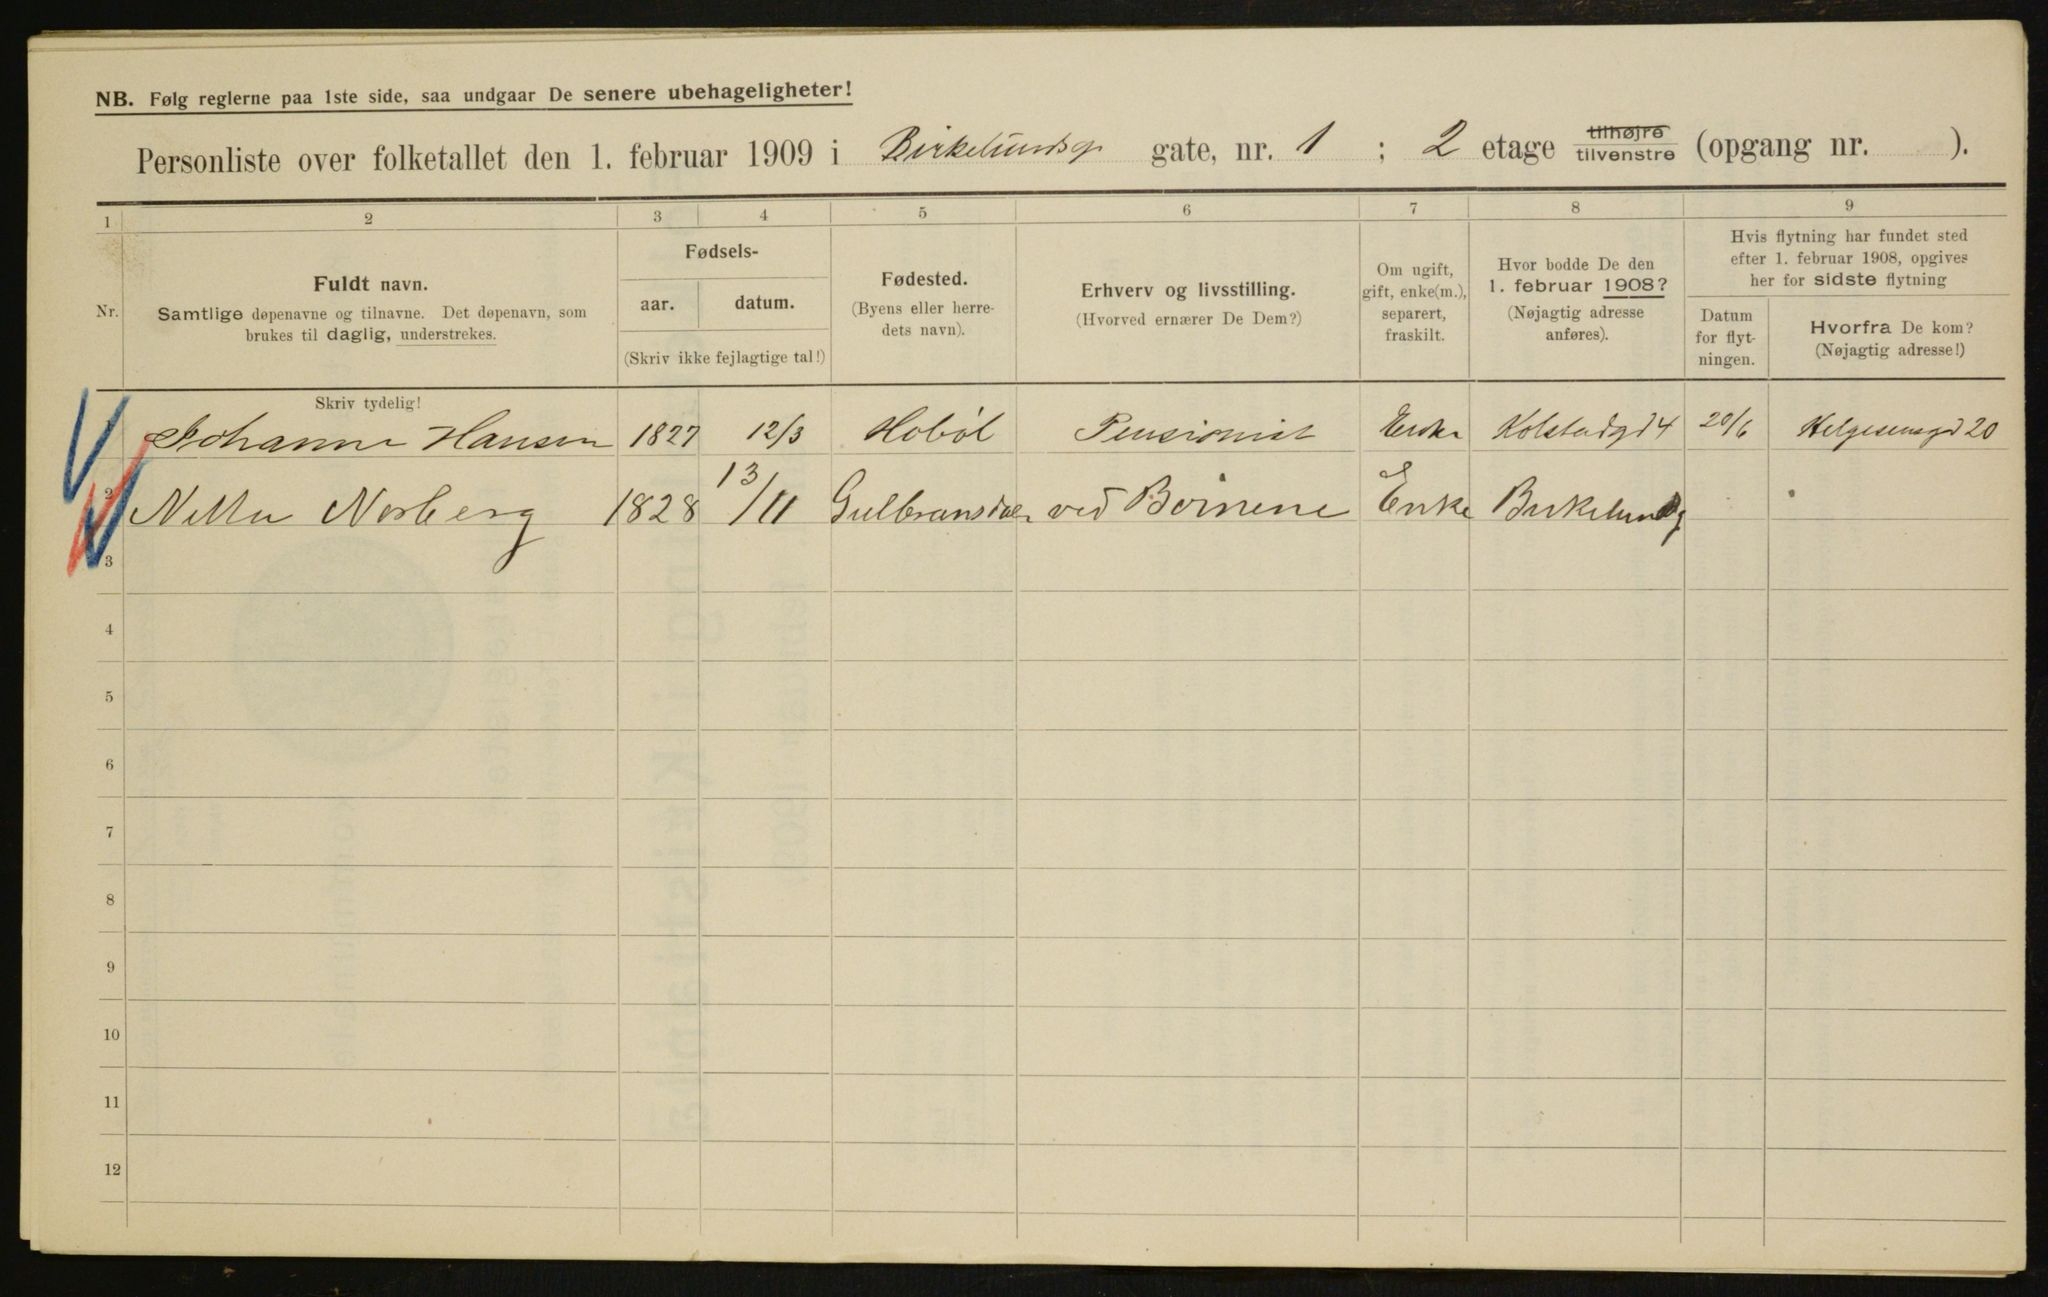 NB. Følg reglerne paa 1ste side, saa undgaar De senere ubehageligheter!
Personliste over folketallet den 1. februar 1909 i Birkelundsg. gate, nr. 1 ; 2 etage tilhøjre tilvenstre (opgang nr. ).
1 2 3 4 5 6 7 8 9
Nr.
Fuldt navn.
Samtlige døpenavne og tilnavne. Det døpenavn, som
brukes til daglig, understrekes.
Skriv tydelig!
Fødsels-
aar. datum.
(Skriv ikke fejlagtige tal!)
Fødested.
(Byens eller herre-
dets navn).
Erhverv og livsstilling.
(Hvorved ernærer De Dem?)
Om ugift,
gift, enke(m.),
separert,
fraskilt.
Hvor bodde De den
1. februar 1908?
(Nøjagtig adresse
anføres).
Hvis flytning har fundet sted
efter 1. februar 1908, opgives
her for sidste flytning
Datum
for flyt-
ningen.
Hvorfra De kom?
(Nøjagtig adresse!)
Johanne Hansen 1827 12/3 Hobøl Pensionist Enke Kolstadgd 4 20/6 Helgesensgd 20
2 Norberg 1828 13/11 Gulbransdalen ved Børnene Enke Birkelundg
3
4
5
6
7
8
9
10
11
12